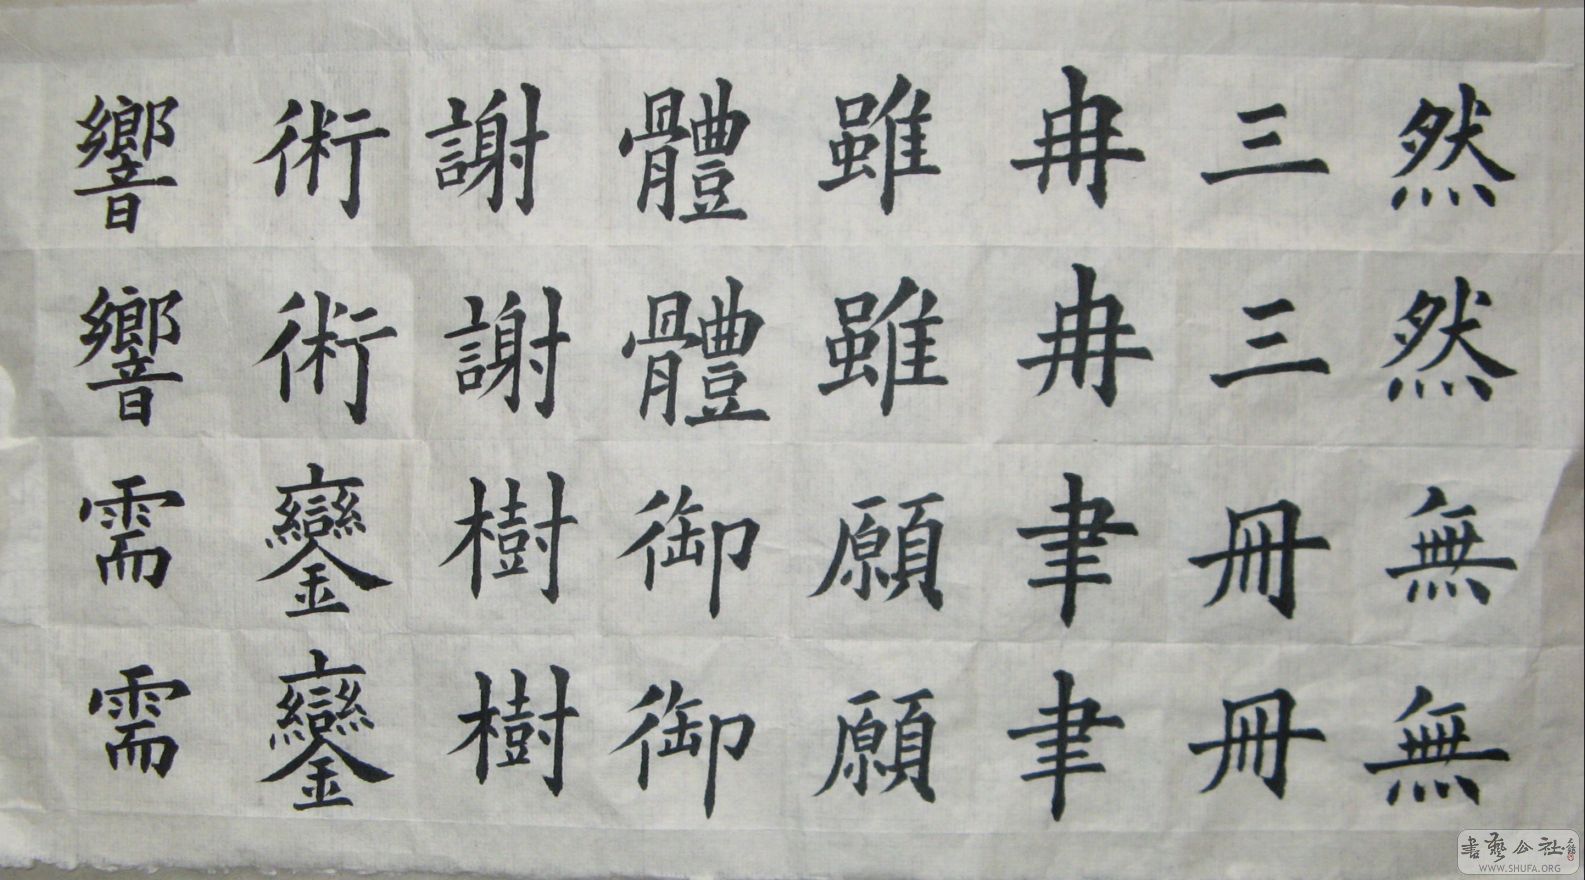 然然無無
三三冊冊
冉冉聿聿
雖雖願願
體體御御
謝謝樹樹
術術鑾鑾
響響需需
書藝公社
WWW.SHUFA.ORG